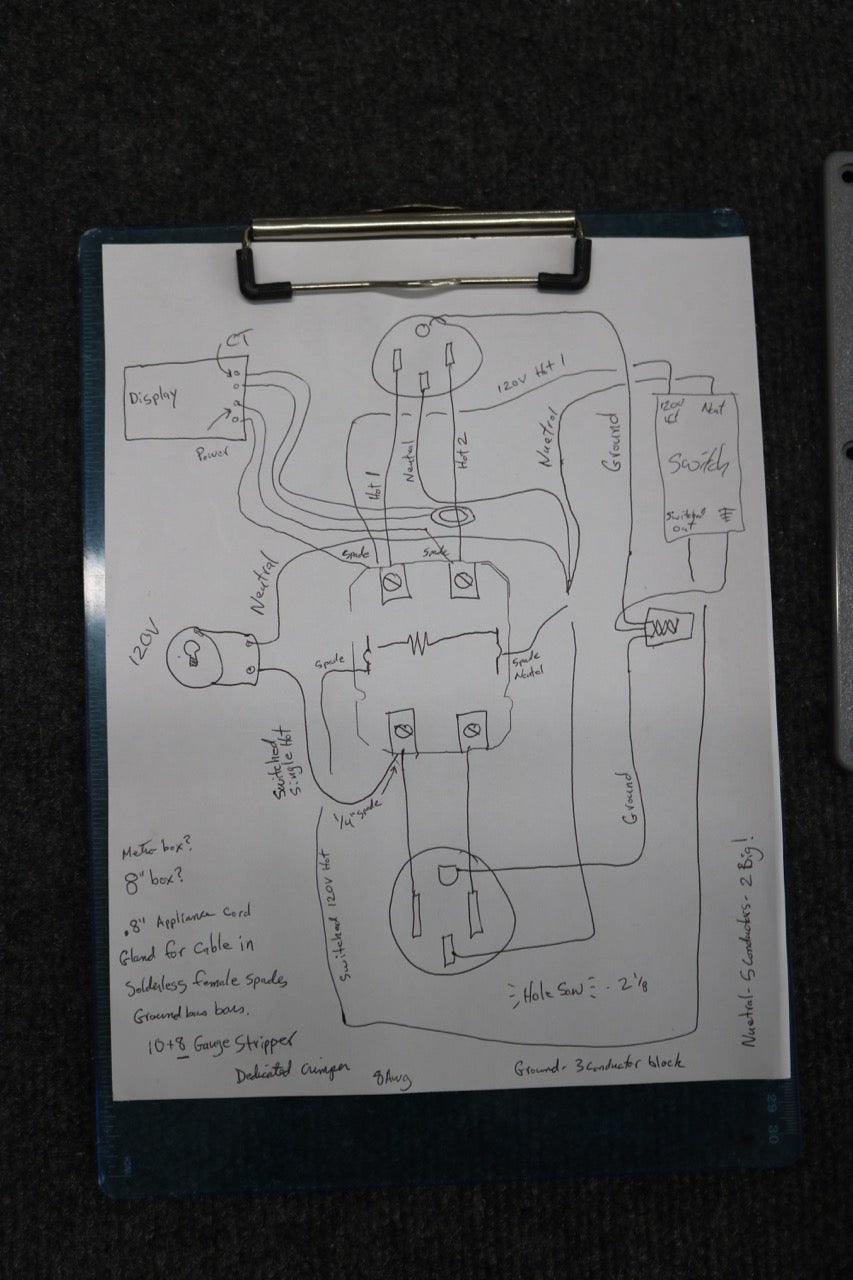 CT
Display
Power
120V Hot 1
120V
Neut
Switch
Switched
Out
Hot 1
Neutral
Hot 2
Nuetral
Ground
Spade
Spade
Neutral
120V
Spade
Spade
Neutral
Switched
Single Hot
1/4" Spade
Switched 120V Hot
Ground
Metro box?
8" box?
.8" Appliance Cord
Gland for Cable in
Solderless female Spades
Ground bus bars.
10+8 Gauge Stripper
Dedicated crimper
8 Awg
Hole Saw - 2 1/8
Ground - 3 conductor block
Nuetral - 5 Conductors - 2 Big!
29 30